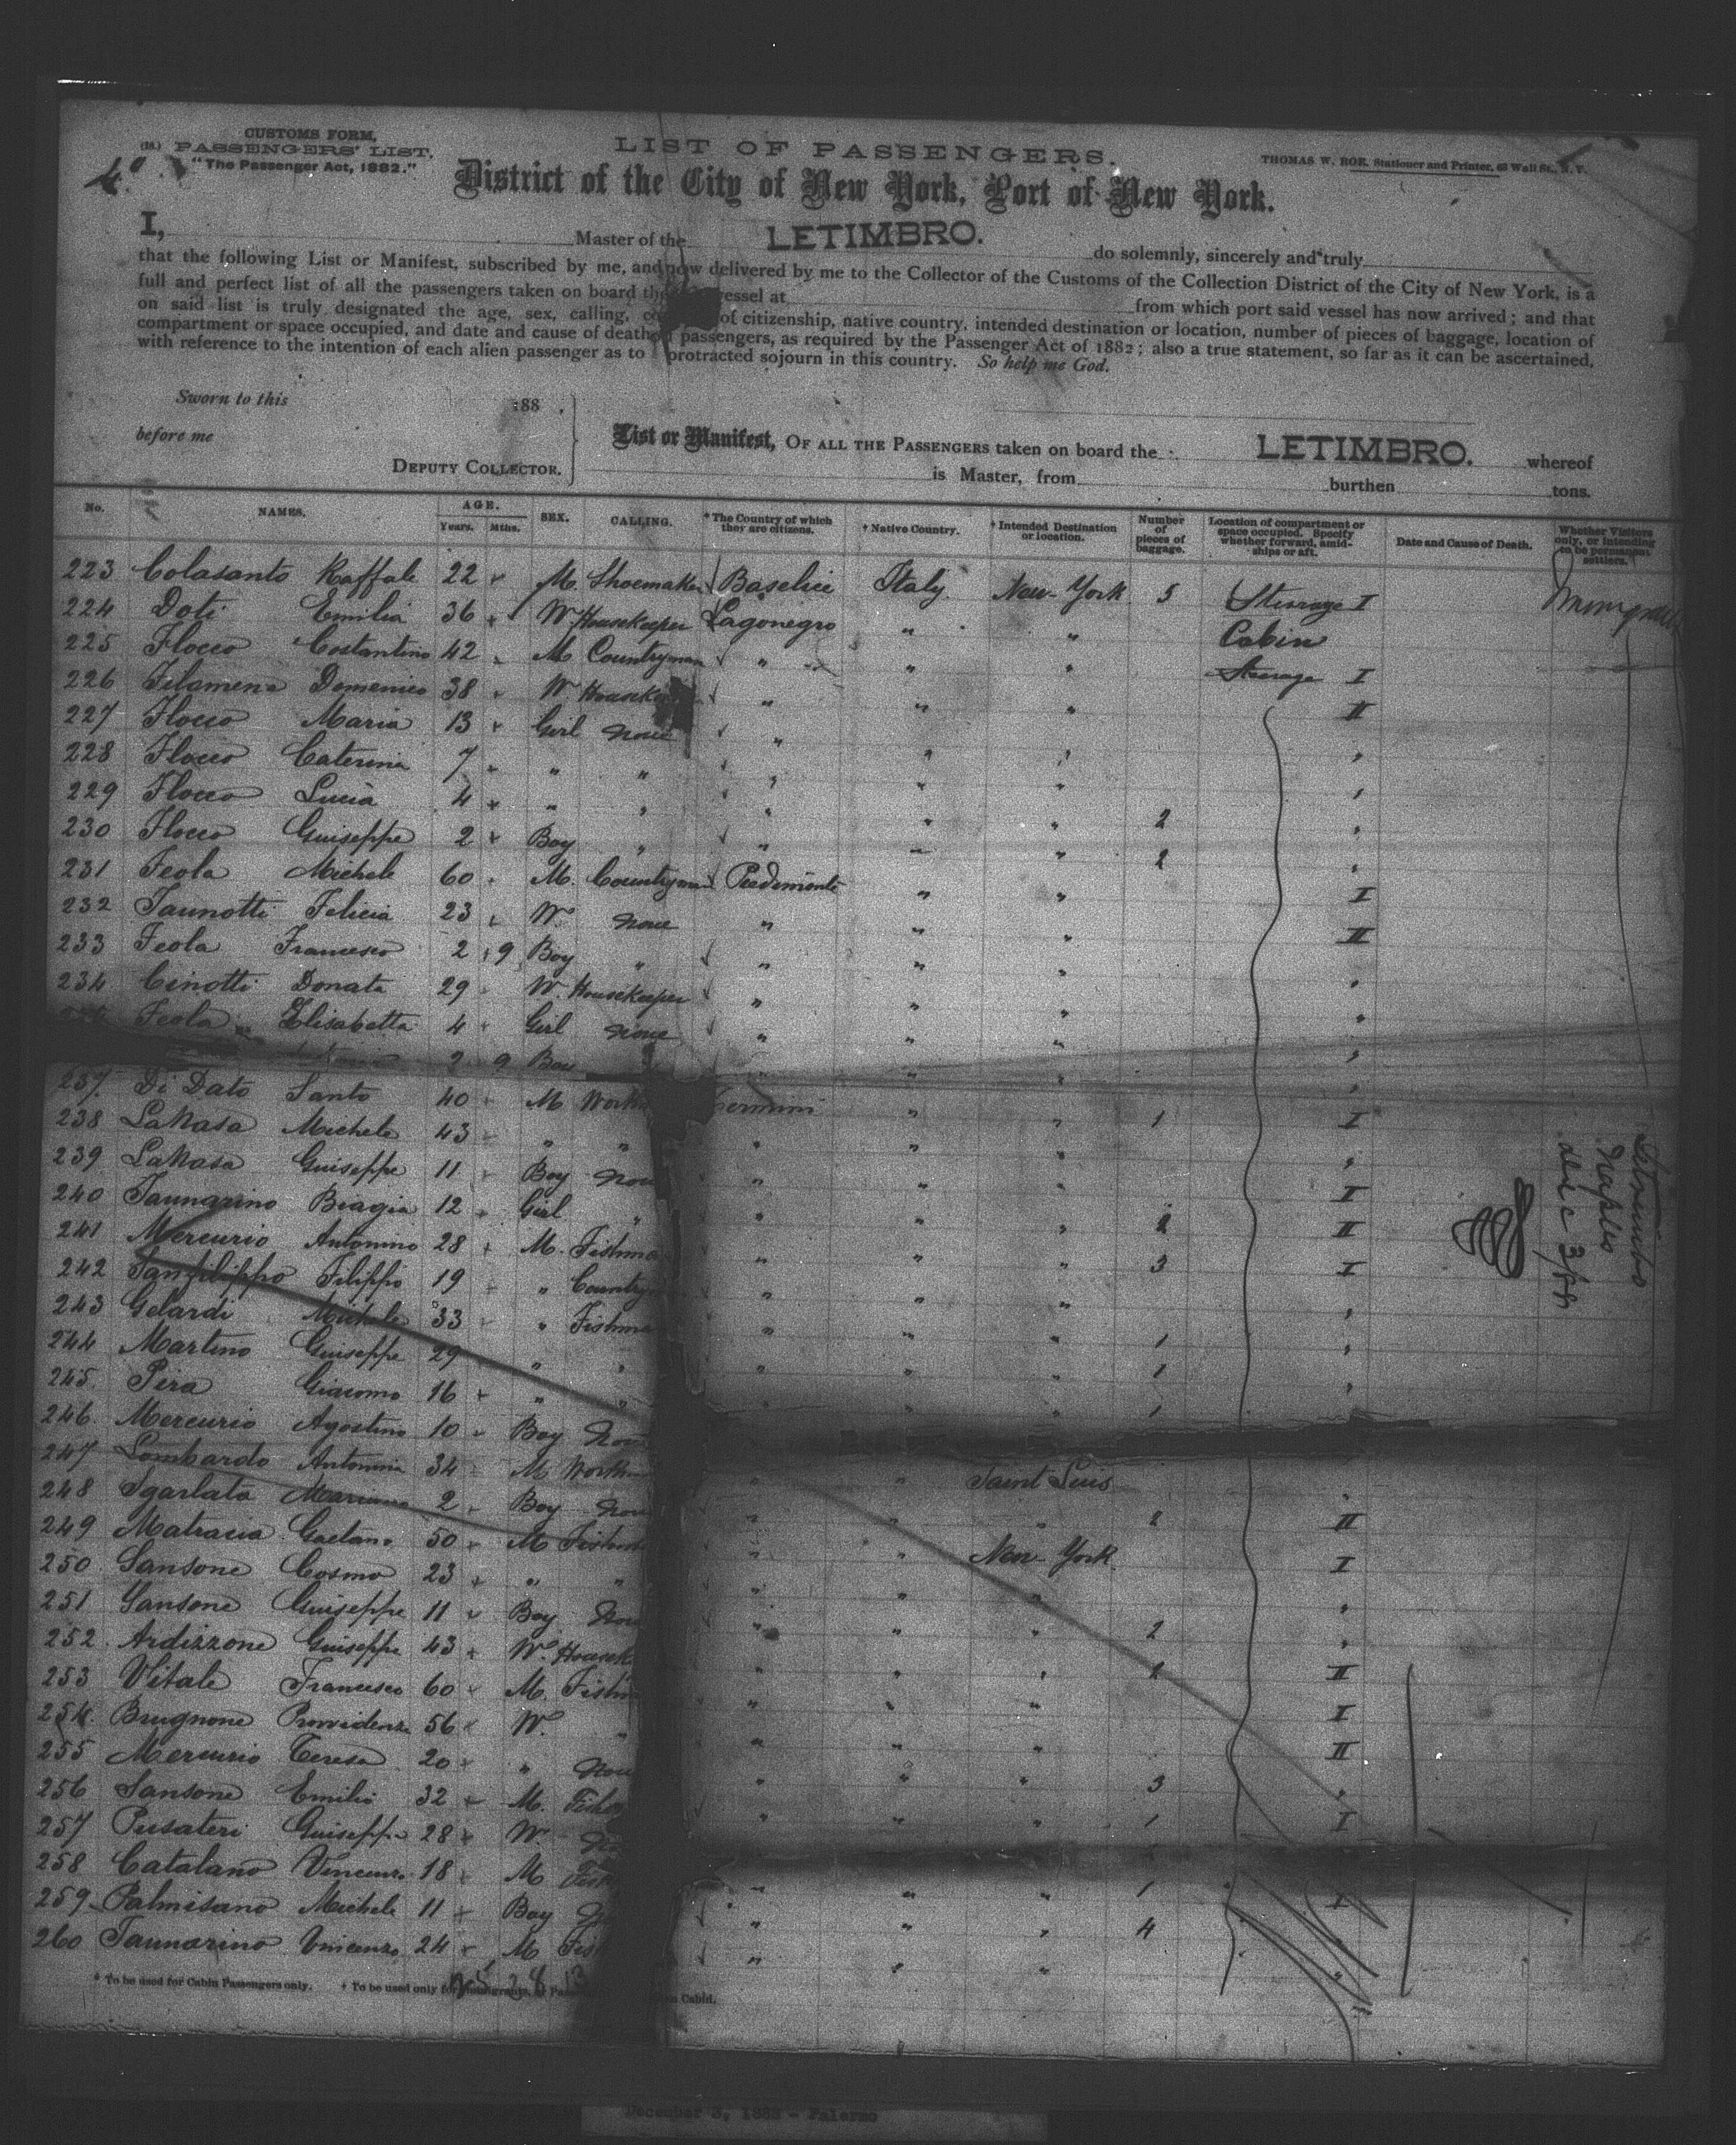 CUSTOMS FORM,
PASSENGERS' LIST.
"The Passenger Act, 1882."
4
LIST OF PASSENGERS.
THOMAS W. ROE, Stationer and Printer, 63 Wall St., N. Y.
District of the City of New York, Port of New York.
I, Master of the LETIMBRO. do solemnly, sincerely and truly
that the following List or Manifest, subscribed by me, and now delivered by me to the Collector of the Customs of the Collection District of the City of New York, is a
full and perfect list of all the passengers taken on board the vessel at from which port said vessel has now arrived; and that
on said list is truly designated the age, sex, calling, of citizenship, native country, intended destination or location, number of pieces of baggage, location of
compartment or space occupied, and date and cause of death of passengers, as required by the Passenger Act of 1882; also a true statement, so far as it can be ascertained,
with reference to the intention of each alien passenger as to protracted sojourn in this country. So help me God.
Sworn to this 188 .
before me
DEPUTY COLLECTOR.
List or Manifest, OF ALL THE PASSENGERS taken on board the LETIMBRO. whereof
is Master, from burthen tons.
No. NAMES. AGE. Years. Mths. SEX. CALLING. * The Country of which they are citizens. † Native Country. † Intended Destination or location. Number of pieces of baggage. Location of compartment or space occupied. Specify whether forward, amidships or aft. Date and Cause of Death. Whether Visitors only, or intending to be permanent settlers.
223 Colasanto Raffale 22 M. Shoemaker Baselice Italy New-York 5 Steerage I
224 Doti Emilia 36 W. Housekeeper Lagonegro " " Cabin
225 Flocco Costantino 42 M Countryman " " " Steerage I
226 Filamena Domenico 38 W " " " II
227 Flocco Maria 13 Girl none " " " "
228 Flocco Caterina 7 " " " " " "
229 Flocco Lucia 4 " " " " " 2 "
230 Flocco Guiseppe 2 Boy " " " " 2 "
231 Feola Michele 60 M. Countryman Piedimonte " " I
232 Iaunotti Felicia 23 W. none " " " II
233 Feola Francesco 2 9 Boy " " " " "
234 Cinotti Donata 29 W. Housekeeper " " " "
Feola Elisabetta 4 Girl none " " " "
2 9 Boy " "
237. Di Dato Santo 40 M " " 1 I
238 LaMasa Michele 43 " " " " " "
239 LaMasa Guiseppe 11 Boy " " " I
240 Iaunarino Biagia 12 Girl " " " " 2 II
241 Mercurio Antonino 28 M. " " " 3 I
242 Sanfilippo Filippo 19 " " " " "
243 Gelardi Michele 33 " " " " 1 "
244 Martino Guiseppe 29 " " " " " 1 "
245. Pira Giacomo 16 " " " 1
246. Mercurio Agostino 10 Boy
247 Lombardo Antonina 34 M " " Saint Luis "
248 Sgarlata Mariano 2 Boy " " " 2 II
249 Matracia Gaetano 50 M " " New-York I
250 Sansone Cosmo 23 " " " " " "
251 Sansone Guiseppe 11 Boy " " " 2 "
252. Ardizzone Guiseppe 43 W. " " " 2 II
253 Vitale Francesco 60 M. " " " I
254. Brugnone Providenza 56 W. " " " " II
255 Mercurio Teresa 20 " " " " 3 "
256 Sansone Emilio 32 M. " " " 1 I
257 Pusateri Guiseppe 28 W.
258 Catalano Vincenzo 18 M " " " 1 I
259 Palmisano Michele 11 Boy " " " 4 "
260 Iaunarino Vincenzo 24 M " " " "
Stromboli
Naples
dec 3/88
* To be used for Cabin Passengers only. † To be used only for Immigrants, or Cabin.
December 3, 1888 - Palermo